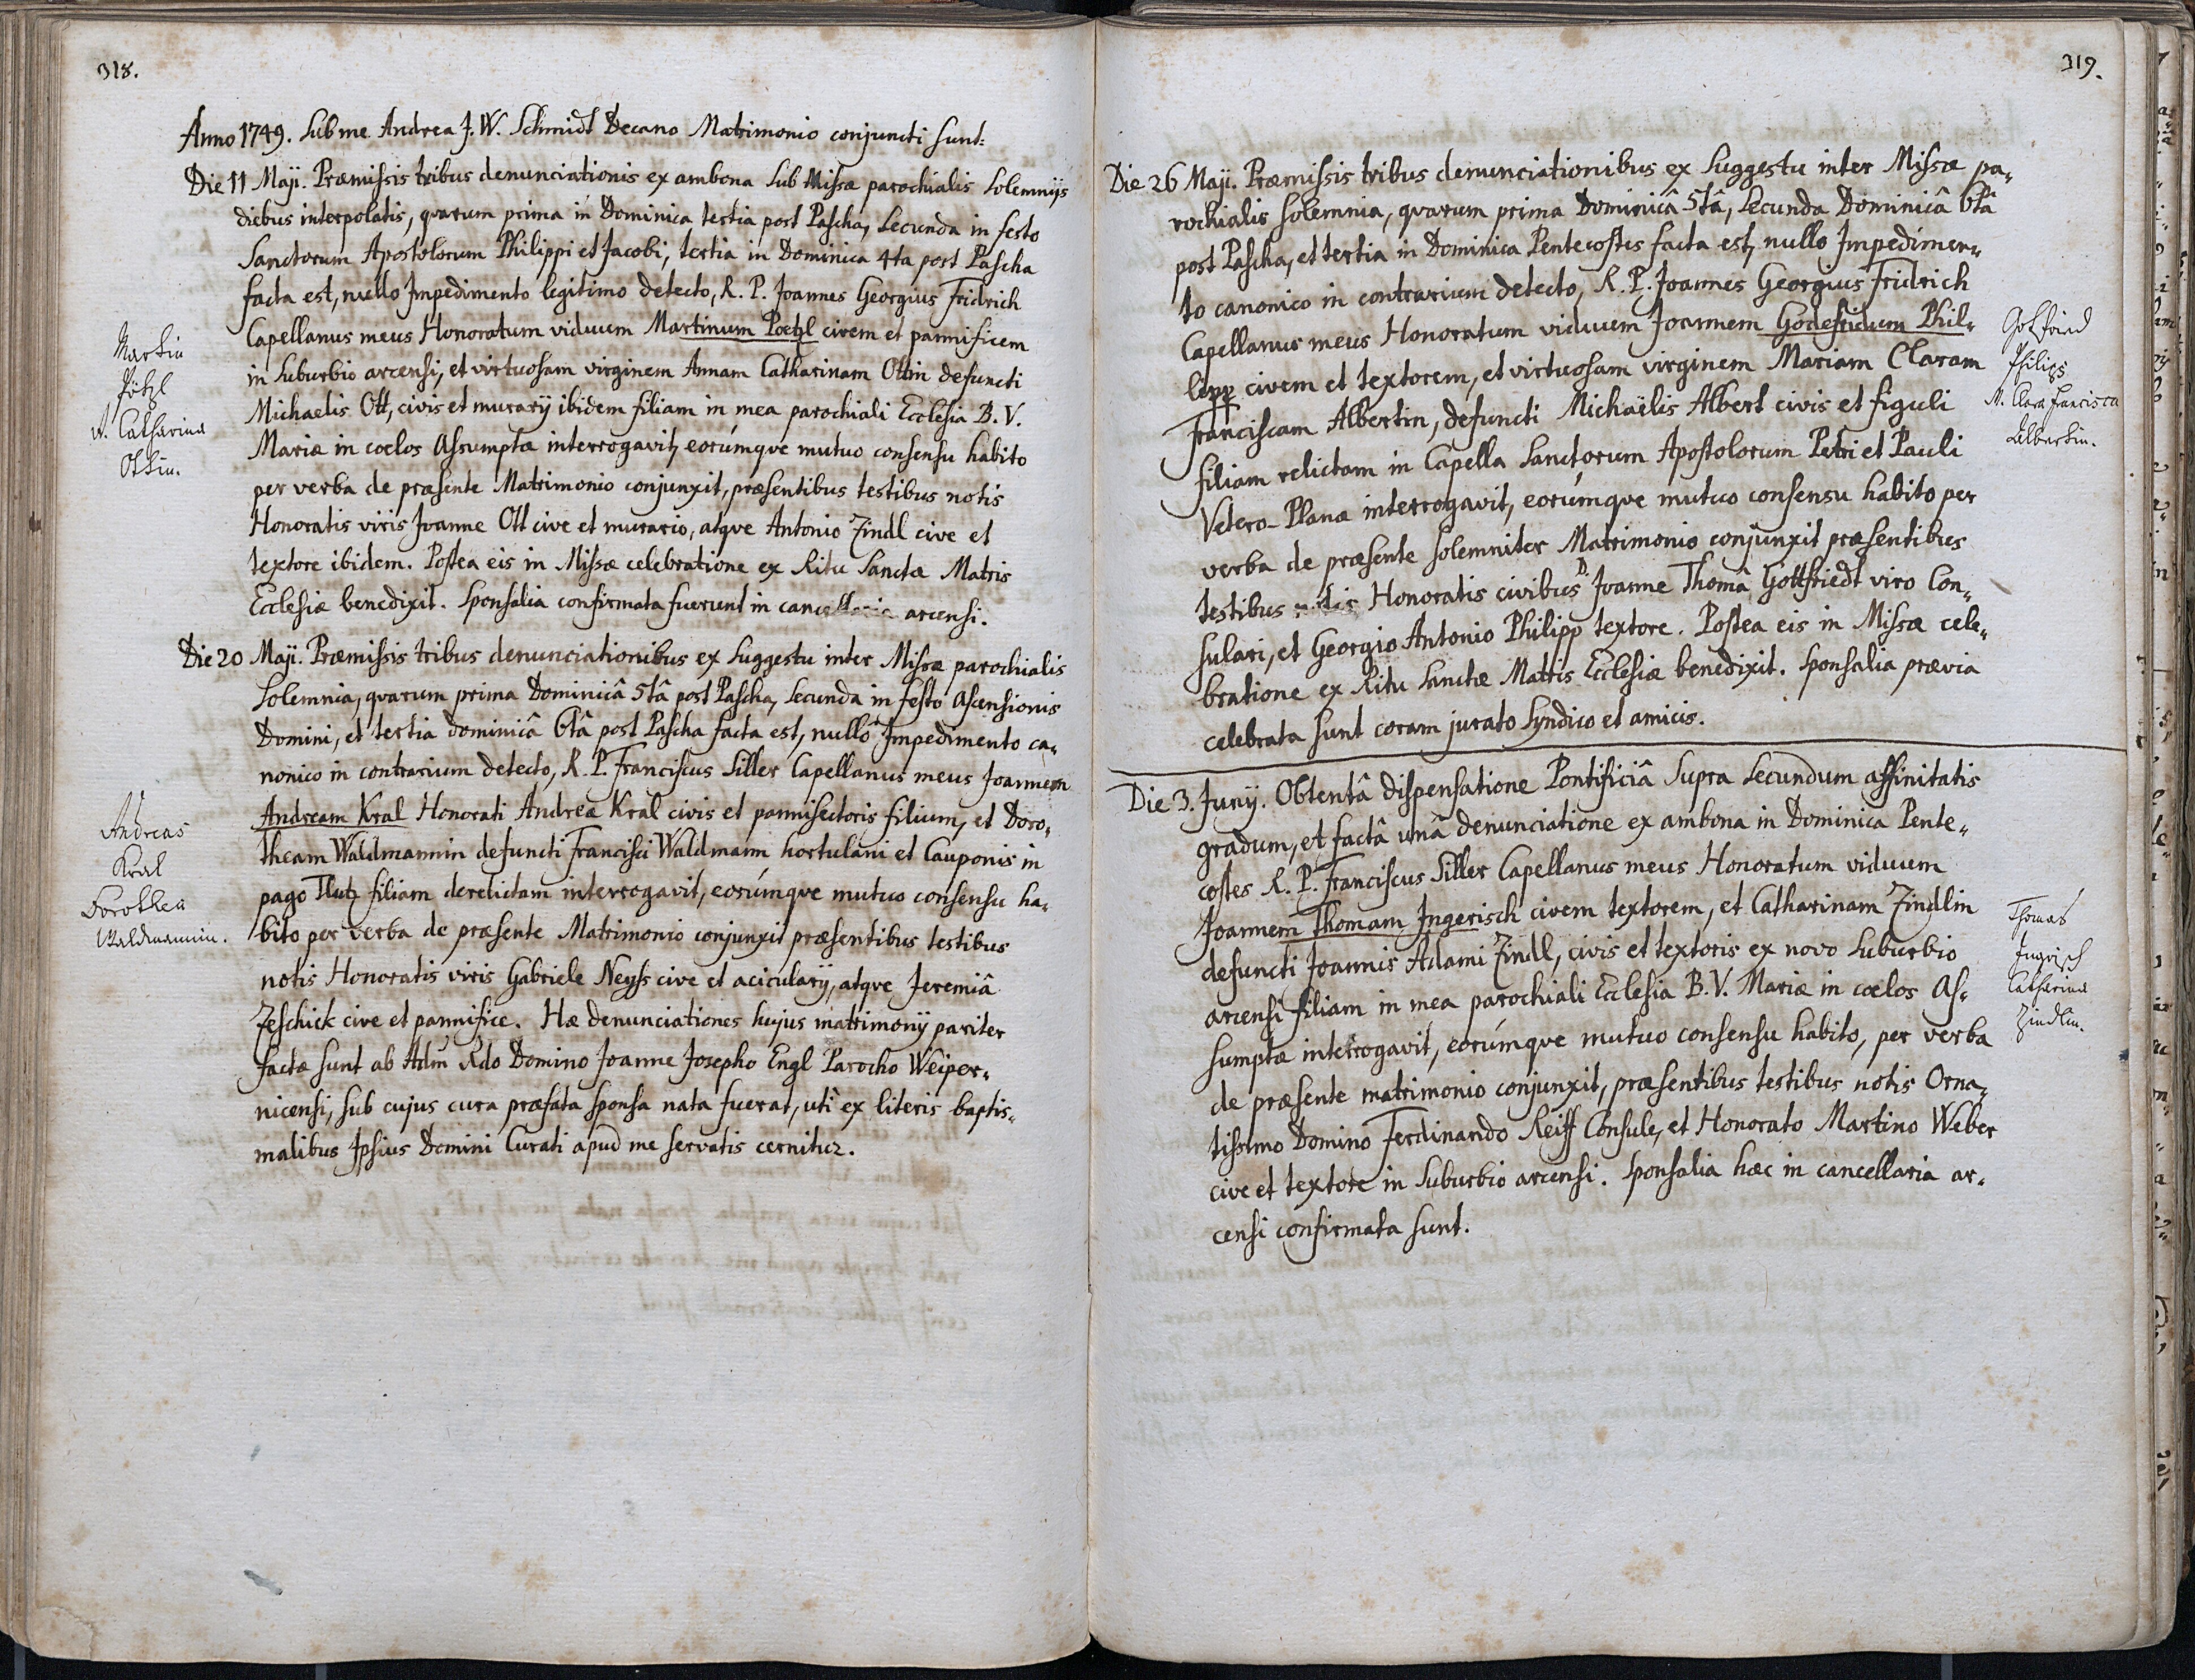 318.
Anno 1749. Sub me Andrea J. W. Schmidt Decano Matrimonio conjuncti sunt:
Die 11 Maji. Præmissis tribus denunciationis ex ambona sub Missæ parochialis solemnijs
diebus interpolatis, quarum prima in Dominica tertia post Pascha, secunda in festo
Sanctorum Apostolorum Philippi et Jacobi, tertia in Dominica 4ta post Pascha
facta est, nullo Impedimento legitimo detecto, R. P. Joannes Georgius Fridrich
Capellanus meus Honoratum viduum Martinum Poetzl civem et pannificem
in suburbio arcensi, et virtuosam virginem Annam Catharinam Ottin defuncti
Michaelis Ott, civis et murarij ibidem filiam in mea parochiali Ecclesia B. V.
Mariæ in coelos Assumptæ interrogavit, eorúmque mutuo consensu habito
per verba de præsente Matrimonio conjunxit, præsentibus testibus notis
Honoratis viris Joanne Ott cive et murario, atque Antonio Zindl cive et
textore ibidem. Postea eis in Missæ celebratione ex Ritu Sanctæ Matris
Ecclesiæ benedixit. Sponsalia confirmata fuerunt in cancellaria arcensi.
Martin
Pötzl
A. Catharina
Ottin.
Die 20 Maji. Præmissis tribus denunciationibus ex suggestu inter Missæ parochialis
solemnia, quarum prima Dominicâ 5tâ post Pascha, secunda in festo Ascensionis
Domini, et tertia dominicâ 6tâ post Pascha facta est, nullo Impedimento ca-
nonico in contrarium detecto, R. P. Franciscus Siller Capellanus meus Joannem
Andream Kral Honorati Andreæ Kral civis et pannisectoris filium, et Doro-
theam Waldmannin defuncti Francisci Waldmann hortulani et Cauponis in
pago Tlutz filiam derelictam interrogavit, eorúmque mutuo consensu ha-
bito per verba de præsente Matrimonio conjunxit præsentibus testibus
notis Honoratis viris Gabriele Neyss cive et acicularij, atque Jeremiâ
Zeschick cive et pannifice. Hæ denunciationes hujus matrimonij pariter
factæ sunt ab Adm Rdo Domino Joanne Josepho Engl Parocho Weiper-
nicensi, sub cujus cura præfata sponsa nata fuerat, uti ex literis baptis-
malibus Ipsius Domini Curati apud me servatis cernitur.
Andreas
Kral
Dorothea
Waldmannin.
319.
Die 26 Maji. Præmissis tribus denunciationibus ex suggestu inter Missæ pa-
rochialis solemnia, quarum prima Dominicâ 5tâ, secunda Dominicâ 6tâ
post Pascha, et tertia in Dominica Pentecostes facta est, nullo Impedimen-
to canonico in contrarium detecto, R. P. Joannes Georgius Fridrich
Capellanus meus Honoratum viduum Joannem Godefridum Phil-
lipp civem et textorem, et virtuosam virginem Mariam Claram
Franciscam Albertin, defuncti Michaëlis Albert civis et figuli
filiam relictam in Capella Sanctorum Apostolorum Petri et Pauli
Vetero-Planæ interrogavit, eorúmque mutuo consensu habito per
verba de præsente solemniter Matrimonio conjunxit præsentibus
testibus notis Honoratis civibus D. Joanne Thomâ Gottfriedt viro Con-
sulari, et Georgio Antonio Philipp textore. Postea eis in Missæ cele-
bratione ex Ritu Sanctæ Matris Ecclesiæ benedixit. Sponsalia prævia
celebrata sunt coram jurato Syndico et amicis.
Gottfried
Philipp
M. Clara Francisca
Albertin.
Die 3. Junij. Obtentâ dispensatione Pontificiâ supra secundum affinitatis
gradum, et factâ unâ denunciatione ex ambona in Dominica Pente-
costes R. P. Franciscus Siller Capellanus meus Honoratum viduum
Joannem Thomam Ingerisch civem textorem, et Catharinam Zindlin
defuncti Joannis Adami Zindl, civis et textoris ex novo suburbio
arcensi filiam in mea parochiali Ecclesia B. V. Mariæ in coelos As-
sumptæ interrogavit, eorúmque mutuo consensu habito, per verba
de præsente matrimonio conjunxit, præsentibus testibus notis Orna-
tissimo Domino Ferdinando Reiff Consule, et Honorato Martino Weber
cive et textore in suburbio arcensi. Sponsalia hæc in cancellaria ar-
censi confirmata sunt.
Thomas
Ingrisch
Catharina
Zindlin.